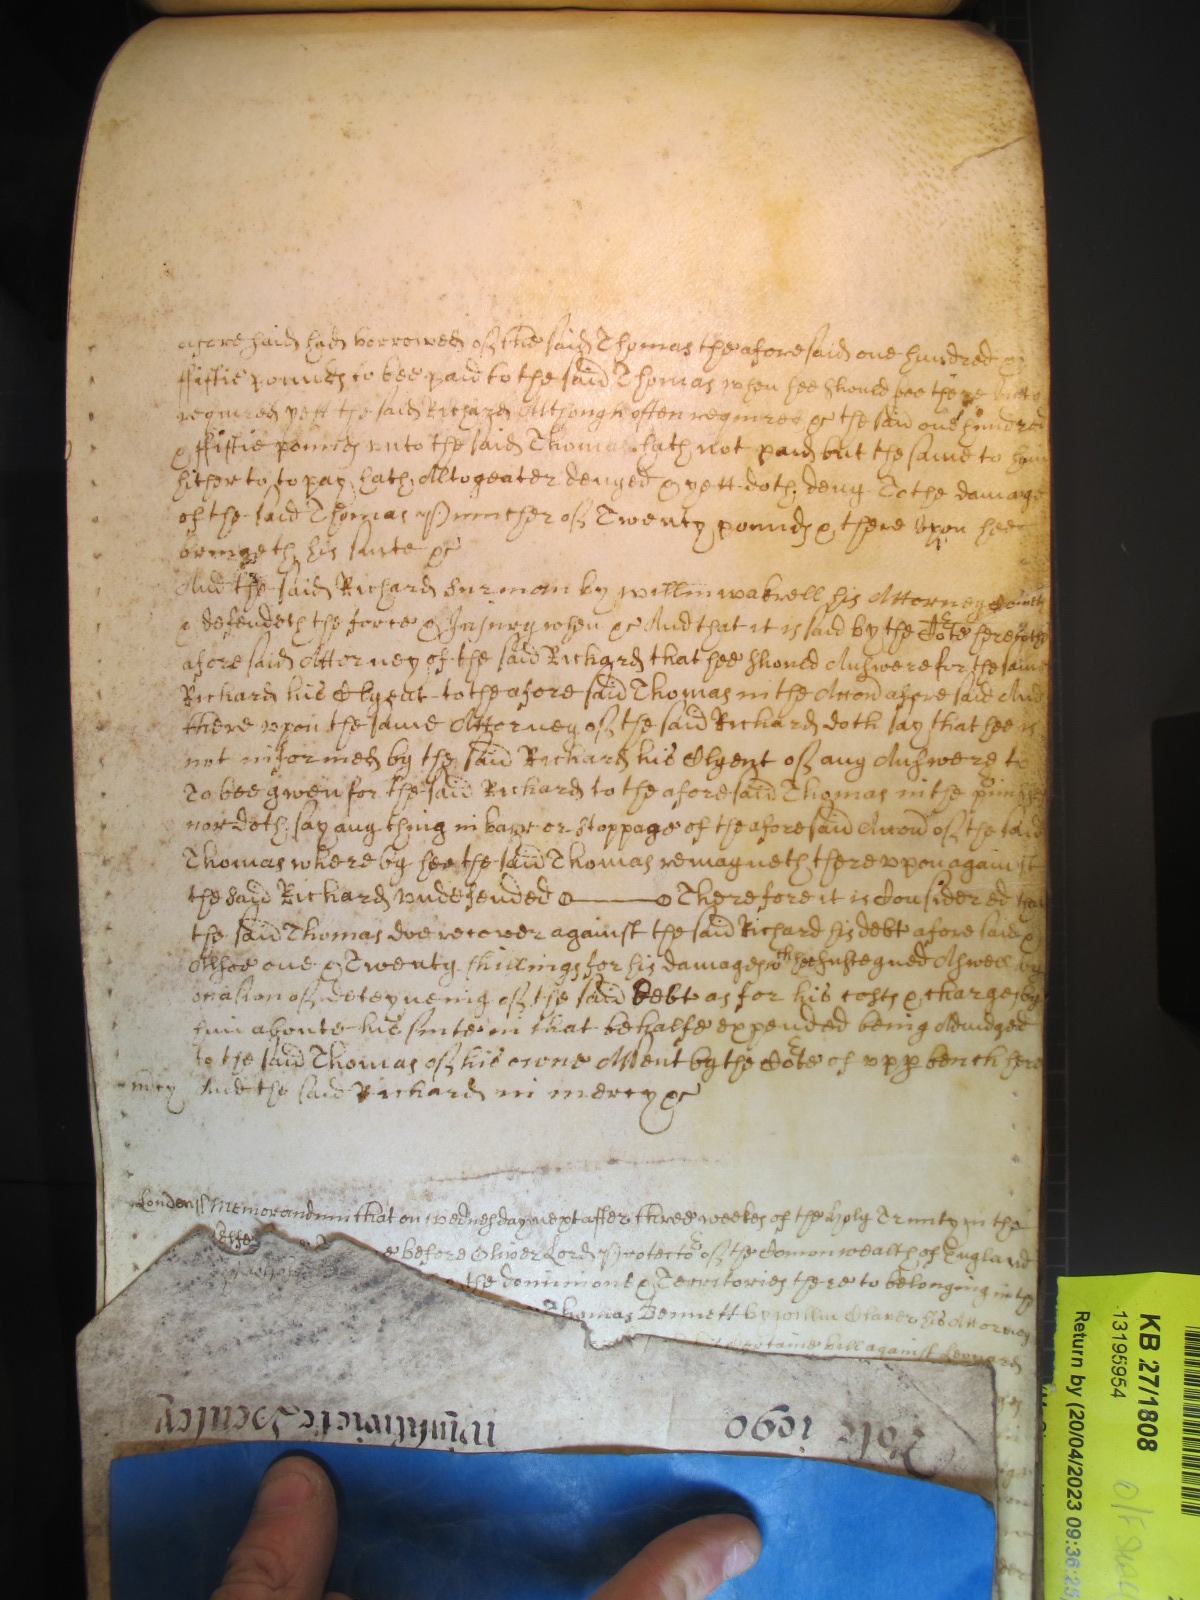 aforesaid had borrowed of the said Thomas the aforesaid one hundred &
ffiftie pounds to bee paid to the said Thomas when hee should bee there unto
required yett the said Richard Although often required &c the said one hundred
& ffiftie pounds unto the said Thomas hath not paid but the same to him
hitherto to pay hath Altogeater denyed & yett doth deny To the damage
of the said Thomas of Twenty pounds & there upon hee
bringeth his suite &c
And the said Richard Surman by Willm his Attorney Cometh
& defendeth the force & Injury when &c And that it is said by the Cote here to the
aforesaid Attorney of the said Richard that hee should Answere for the same
Richard his Clyent to the afore said Thomas in the Accon aforesaid And
there upon the same Attorney of the said Richard doth say that hee is
not informed by the said Richard his Clyent of any Answere to
To bee given for the said Richard to the aforesaid Thomas in the
nor doth say any thing in barr or stoppage of the aforesaid Accon of the said
Thomas whereby hee the said Thomas remayneth there upon against
the said Richard undefended Therefore it is Considered that
the said Thomas doe recover against the said Richard his debt aforesaid &
Alsoe one & Twenty shillings for his damages wch hee susteyned Aswell by
occasion of deteyneing of the said Debt as for his costs & charges by
him aboute his suite in that behalfe expended being Adiudged
to the said Thomas of his owne Assent by the Cote of upp bench here
mcy And the said Richard in mercy &c
London ss Memorandum that on wednesday next after three weekes of the holy Trinity in the
before Oliver Lord Protector of the Comonwealth of England
the dominions & Territories there to belonging in the
Thomas Bennett by Willm his Attorney
certaine bill against Leonard
Rotl 1090
KB 27/1808
13195954
Return by (20/04/2023 09:36:25)